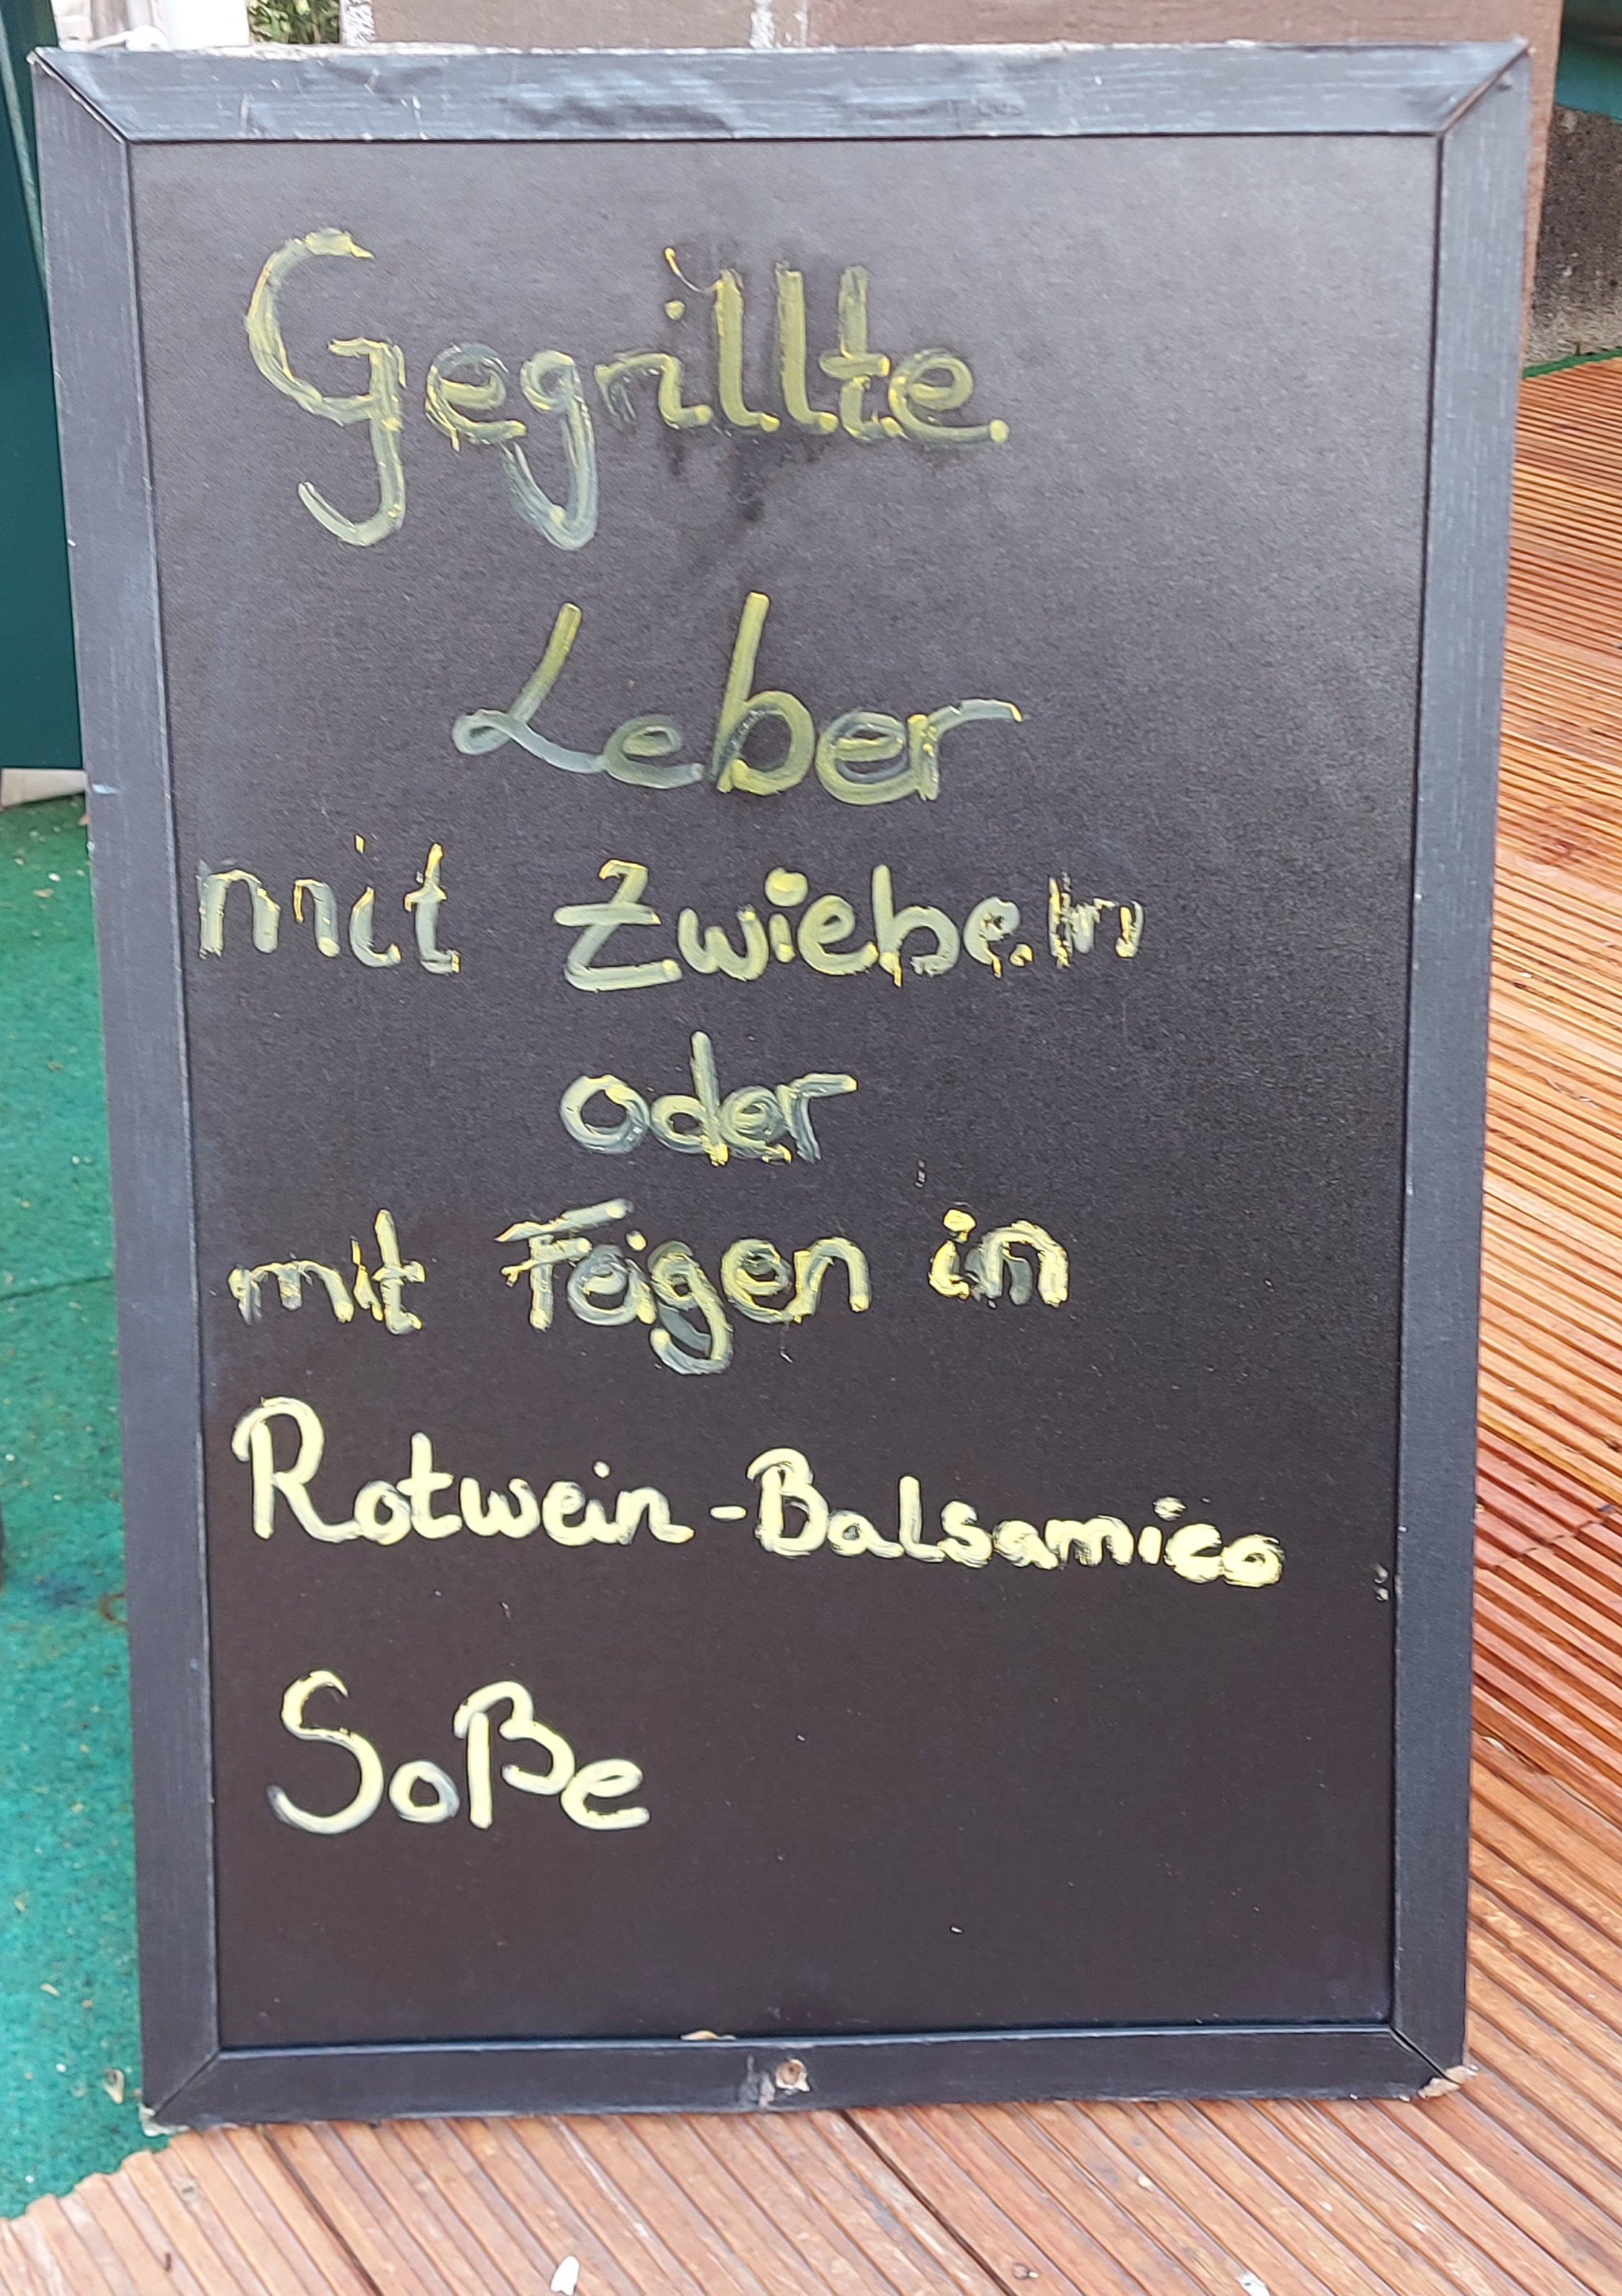 Gegrillte
Leber
mit Zwiebeln
oder
mit Feigen in
Rotwein-Balsamico
Soße